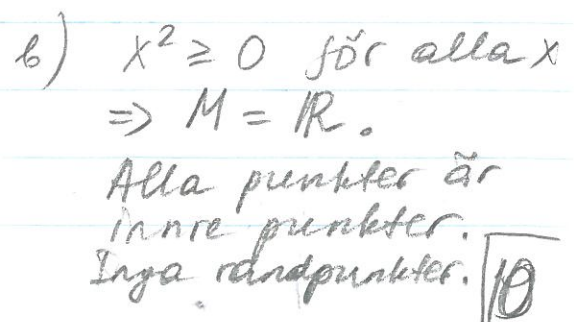 b) x² ≥ 0 för alla x
=> M = ℝ.
Alla punkter är
inre punkter.
Inga randpunkter.